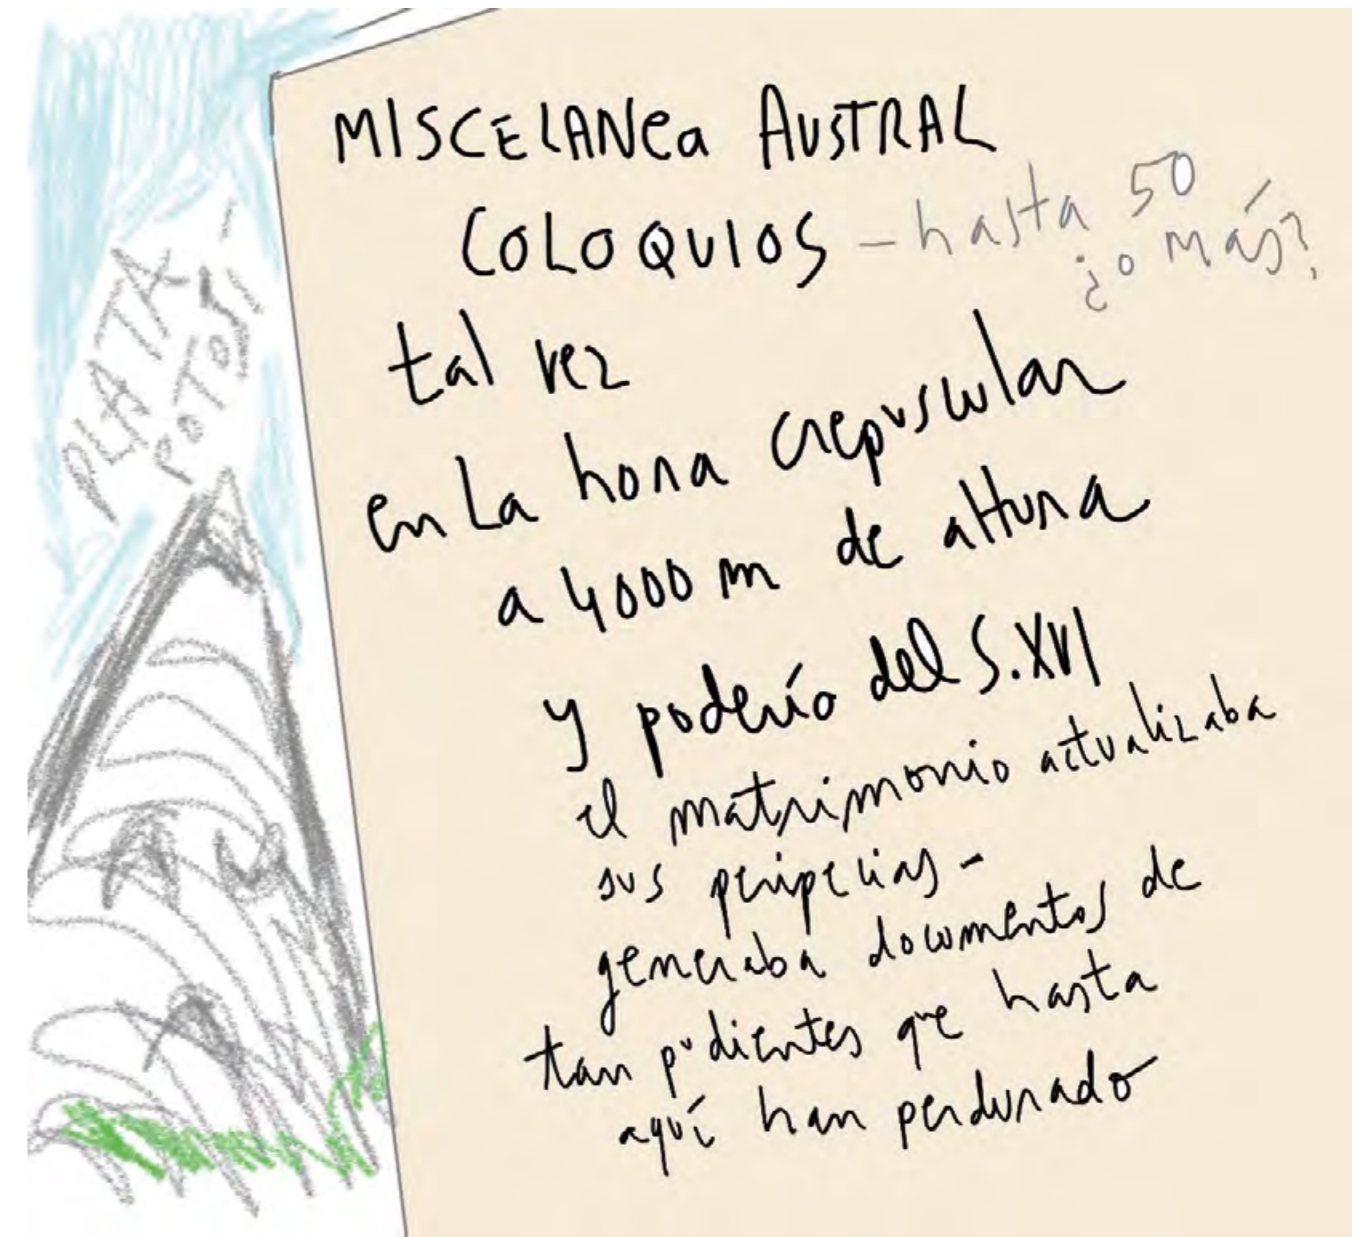 MISCELANea AUSTRAL
COLOQUIOS – hasta 50
¿o más?
tal vez
en La hora crepuscular
a 4000 m de altura
y poderío del S.XVI
el matrimonio actualizaba
sus peripecias –
generaba documentos de
tan pudientes que hasta
aquí han perdurado
PLATA
POTOSÍ